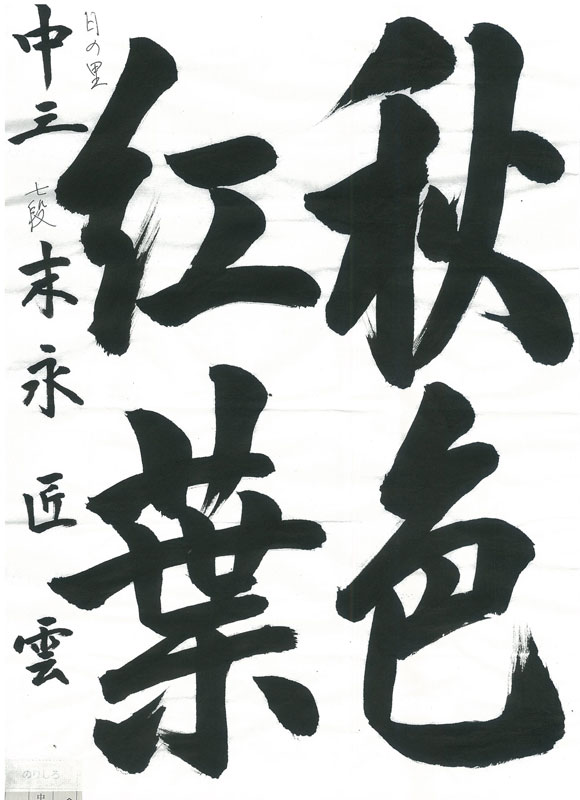 秋色
紅葉
日の里
中三
七段
末永匠雲
のりしろ